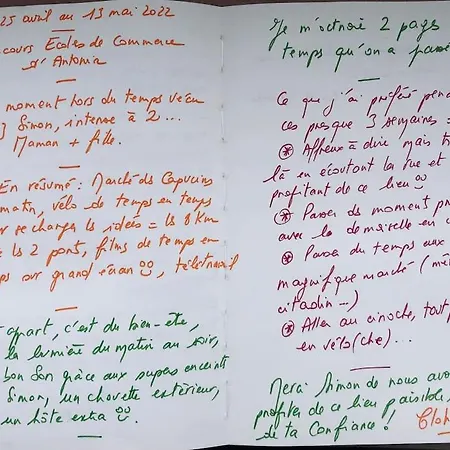 25 avril au 13 mai 2022
cours Ecoles de Commerce
d'Antonia
moment hors du temps vécu
Simon, intense à 2...
Maman + fille.
En résumé : Marché des Capucins
matin, vélo de temps en temps
se changer ls idées = ls 8 Km
ls 2 ponts, films de temps en
ps sur grand écran, télétravail
apart, c'est du bien-être,
la lumière du matin au soir,
bon son grâce aux supers enceints
Simon, un chouette extérieur,
un hôte extra
Je m'octroie 2 pages
temps qu'on a passé
Ce que j'ai préféré pend
ces presque 3 semaines =
Affreux à dire mais
là en écoutant la rue et
profitant de ce lieu
Passer des moments
avec la demoiselle en
Passer du temps aux
magnifique marché (mê
citadin...)
Aller au cinoche, tout
en vélo(che)...
Merci Simon de nous avo
profiter de ce lieu paisible
de ta confiance !
Cloh